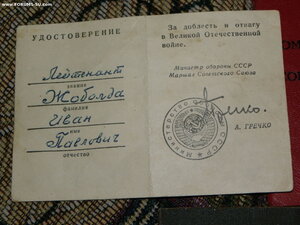 www.FORUMS-SU.com
УДОСТОВЕРЕНИЕ
Лейтенант
звание
Жоболда
фамилия
Иван
имя
Павлович
отчество
За доблесть и отвагу
в Великой Отечественной
войне.
Министр обороны СССР
Маршал Советского Союза
А. ГРЕЧКО